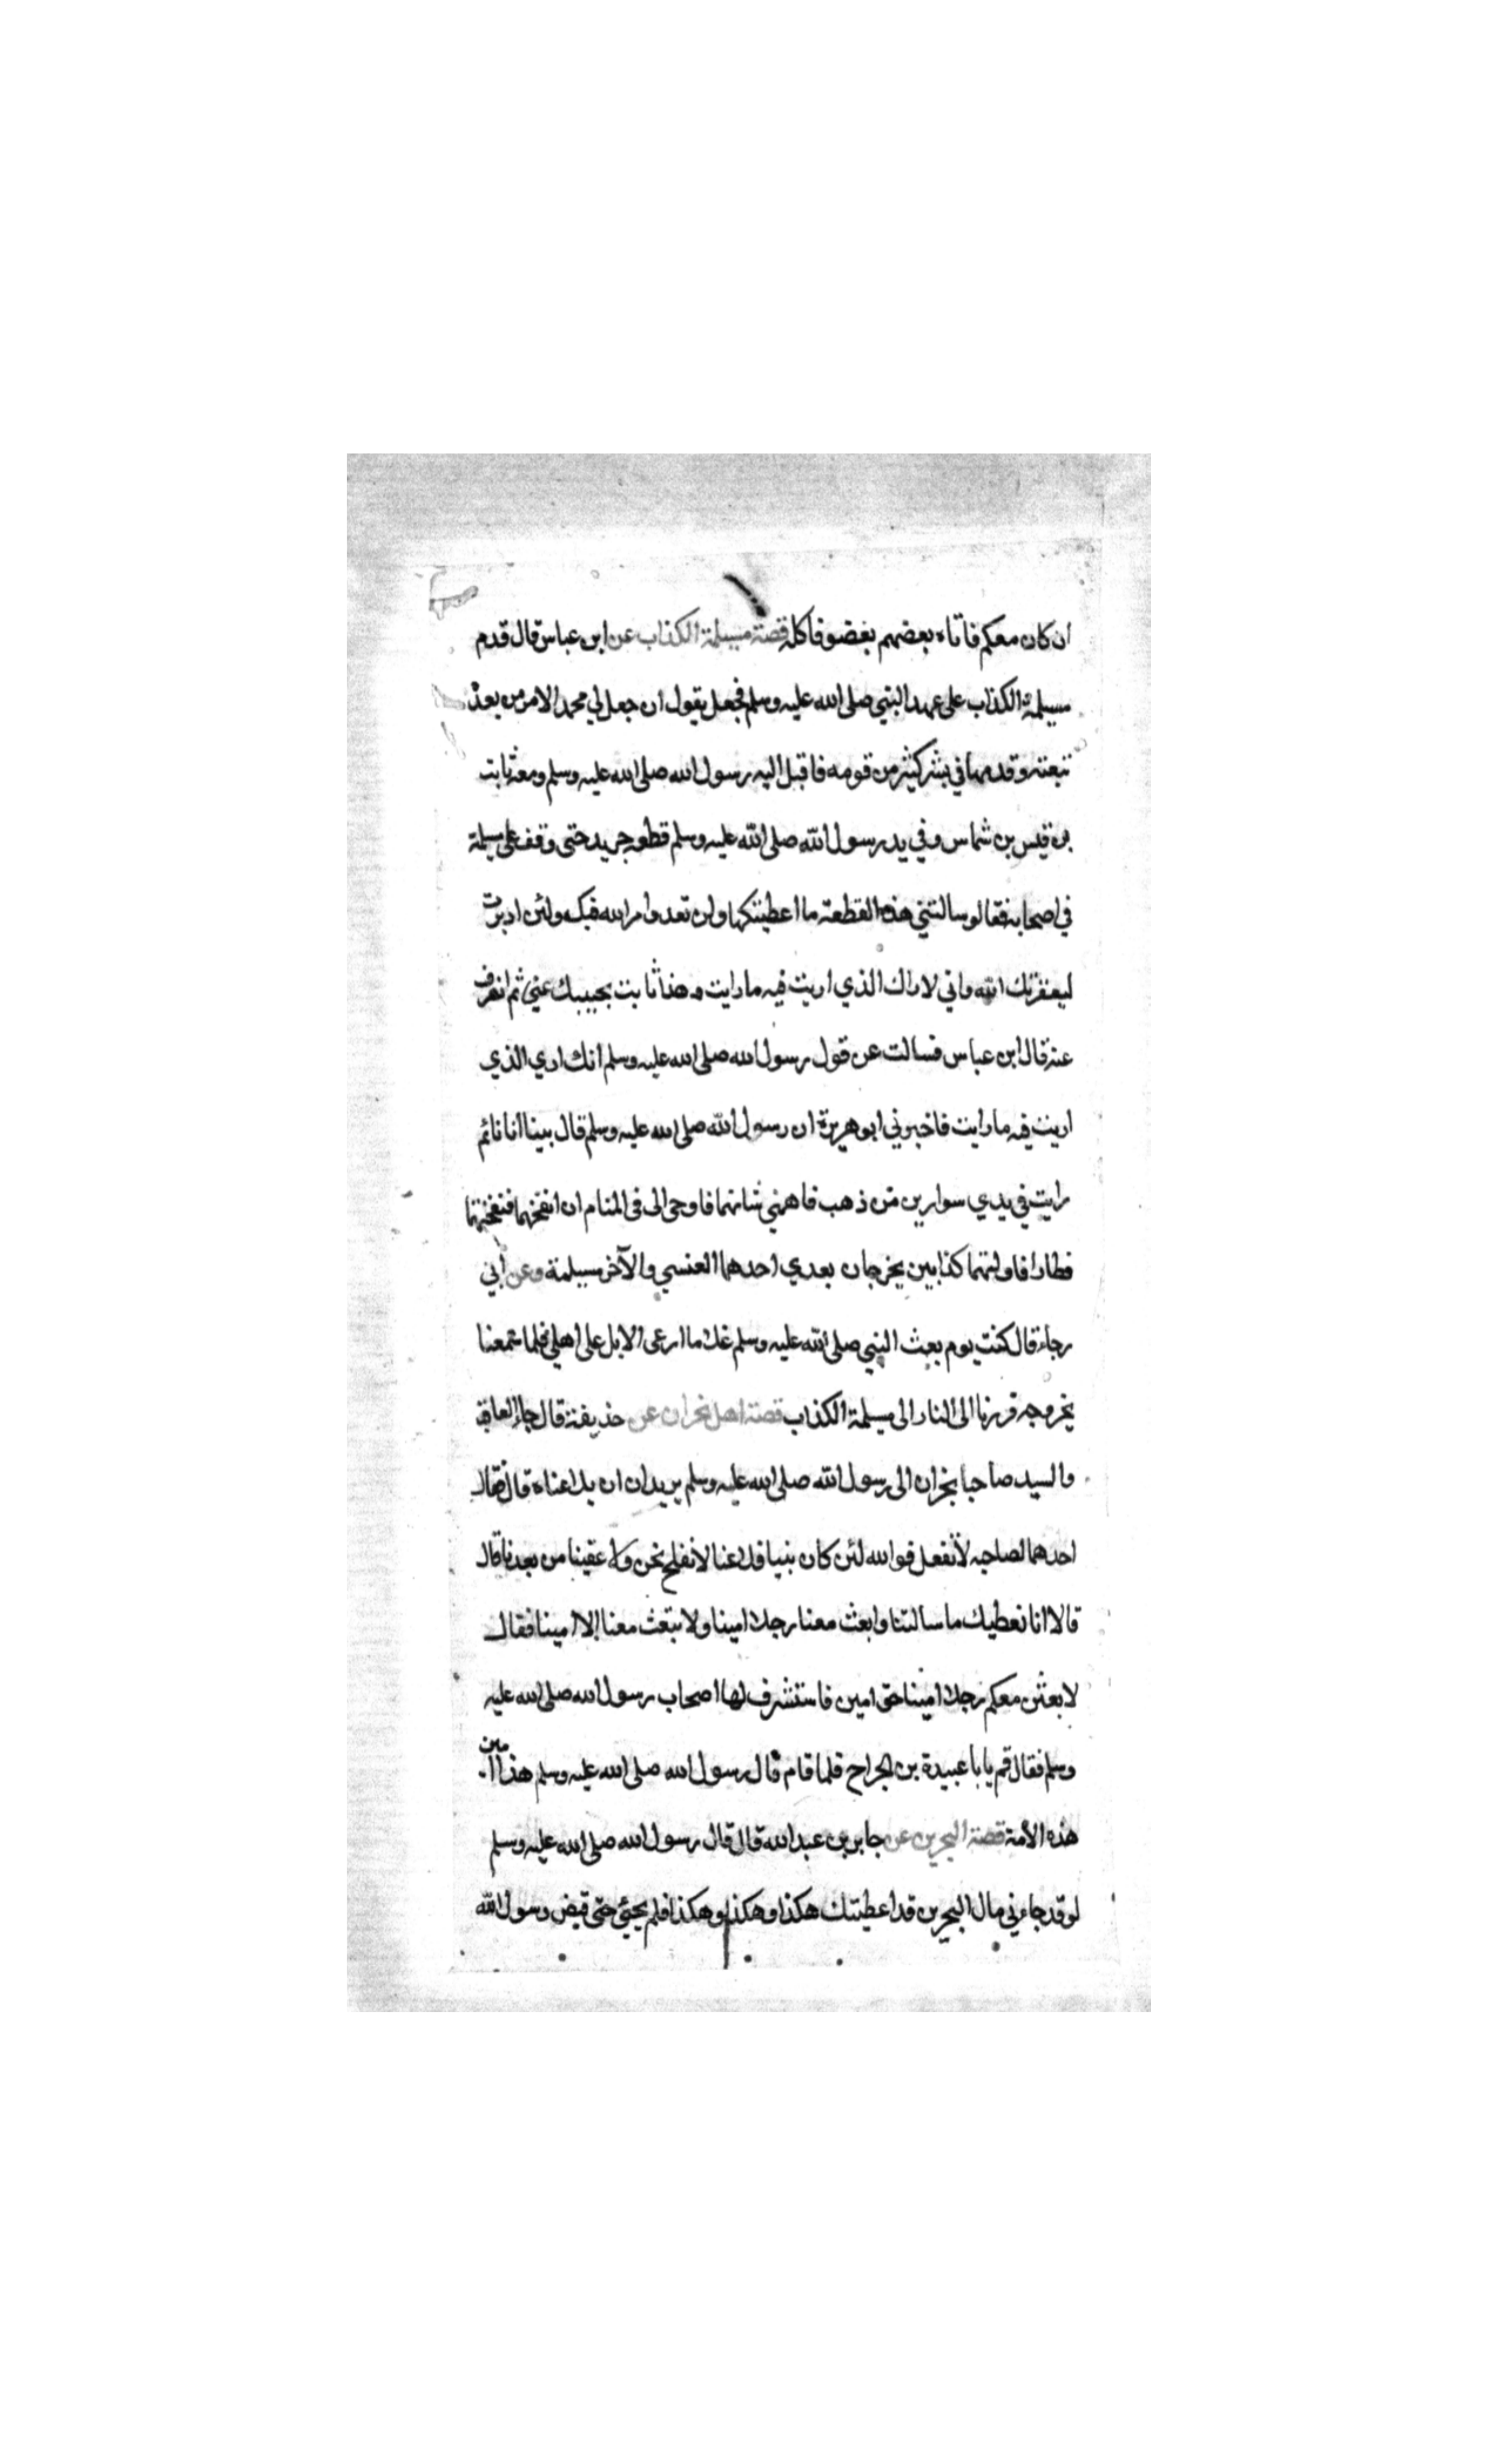 ان كان معكم فاتاه بعضهم بعضو فاكله قصة مسيلمة الكذاب عن ابن عباس قال قدم
مسيلمة الكذاب على عهد النبي صلى الله عليه وسلم فجعل يقول ان جعل لي محمد الامر من بعده
تبعته وقدمها في بشر كثير من قومه فاقبل اليه رسول الله صلى الله عليه وسلم ومعه ثابت
بن قيس بن شماس وفي يد رسول الله صلى الله عليه وسلم قطعة جريد حتى وقف على مسيلمة
في اصحابه فقال لو سالتني هذه القطعة ما اعطيتكها ولن تعدوا امر الله فيك ولئن ادبرت
ليعقرنك الله واني لاراك الذي اريت فيه ما رايت وهذا ثابت يجيبك عني ثم انصرف
عنه قال ابن عباس فسالت عن قول رسول الله صلى الله عليه وسلم انك اري الذي
اريت فيه ما رايت فاخبرني ابو هريرة ان رسول الله صلى الله عليه وسلم قال بينا انا نائم
رايت في يدي سوارين من ذهب فاهمني شانهما فاوحى الى فى المنام ان انفخهما فنفختهما
فطارا فاولتهما كذابين يخرجان بعدي احدهما العنسي والآخر مسيلمة وعن أبي
رجاء قال كنت يوم بعث النبي صلى الله عليه وسلم غلاما ارعى الابل على اهلي فلما سمعنا
بخروجه فررنا الى النار الى مسيلمة الكذاب قصة اهل نجران عن حذيفة قال جاء العاقب
والسيد صاحبا نجران الى رسول الله صلى الله عليه وسلم يريدان ان يلاعناه قال فقال
احدهما لصاحبه لا تفعل فوالله لئن كان نبيا فلاعنا لا نفلح نحن ولا عقبنا من بعدنا قال
قالا انا نعطيك ما سالتنا وابعث معنا رجلا امينا ولا تبعث معنا إلا امينا فقال
لابعثن معكم رجلا امينا حق امين فاستشرف لها اصحاب رسول الله صلى الله عليه
وسلم فقال قم يا با عبيدة بن الجراح فلما قام قال رسول الله صلى الله عليه وسلم هذا امين
هذه الأمة قصة البحرين عن جابر بن عبد الله قال قال رسول الله صلى الله عليه وسلم
لو قد جاءني مال البحرين قد اعطيتك هكذا وهكذا وهكذا فلم يجئ حتى قبض رسول الله